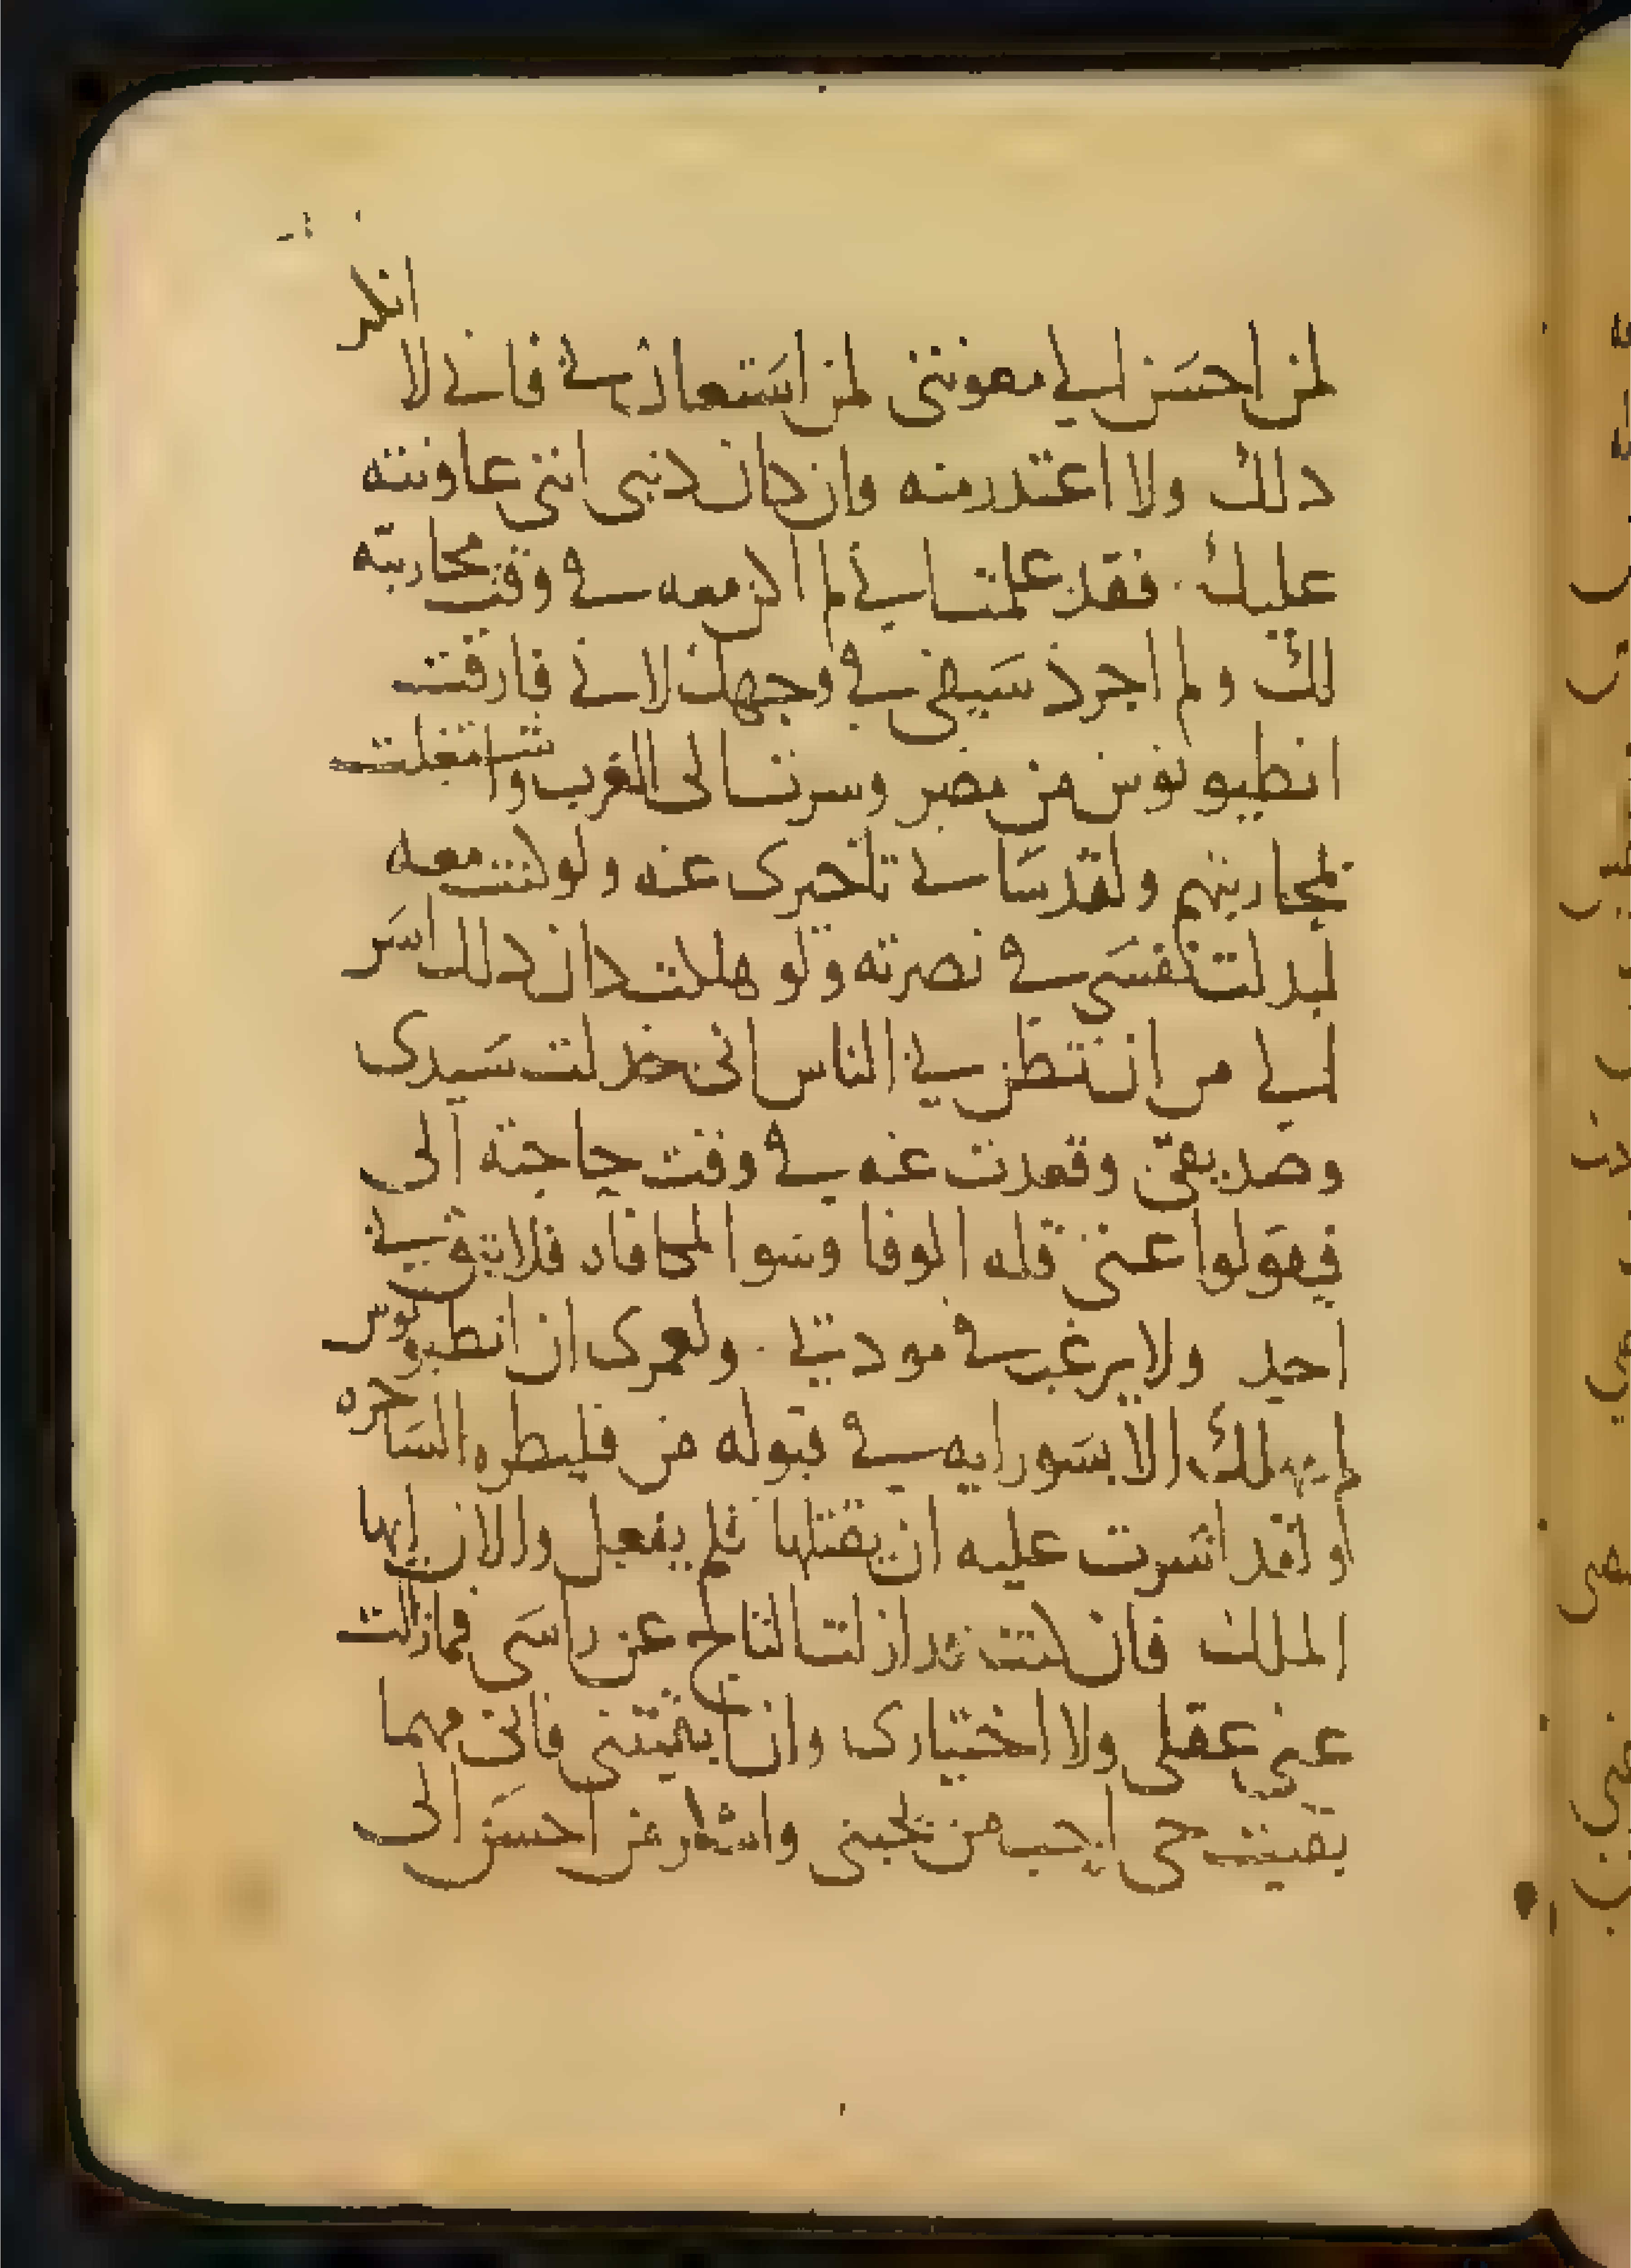 لمن احسن الي معونتي لمن استعان بي فاني لا انكر
دلك ولا اعتدر منه وان كان دنبي انني عاونته
عليك فقد علمت اني لم اكن معه في وقت محاربته
لك ولم اجرد سيفي في وجهك لاني فارقت
انطيونوس من مصر وسرت الى الغرب واشتغلت
بمحاربتهم ولقد ساني تاخيري عنه ولو كنت معه
لبدلت نفسي في نصرته ولو هلكت كان دلك اسر
لي من ان تنظر لي الناس اني خدلت سيدي
وصديقي وقعدت عنه في وقت حاجته الى
فيقولوا عني قله الوفا وسو المكافاه فلا يثق بي
احد ولا يرغب في مودتي ولعمري ان انطيونوس
لم يهلك الا بسو رايه في قبوله من قليطره الساحره
ولقد اشرت عليه ان يقتلها فلم يفعل والان ايها
الملك فان كنت قد ازلت التاج عن راسي فما زلت
عني عقلي ولا اختياري وان ابقيتني فاني مهما
بقيت حي احب من يحبني واشكر من احسن الى